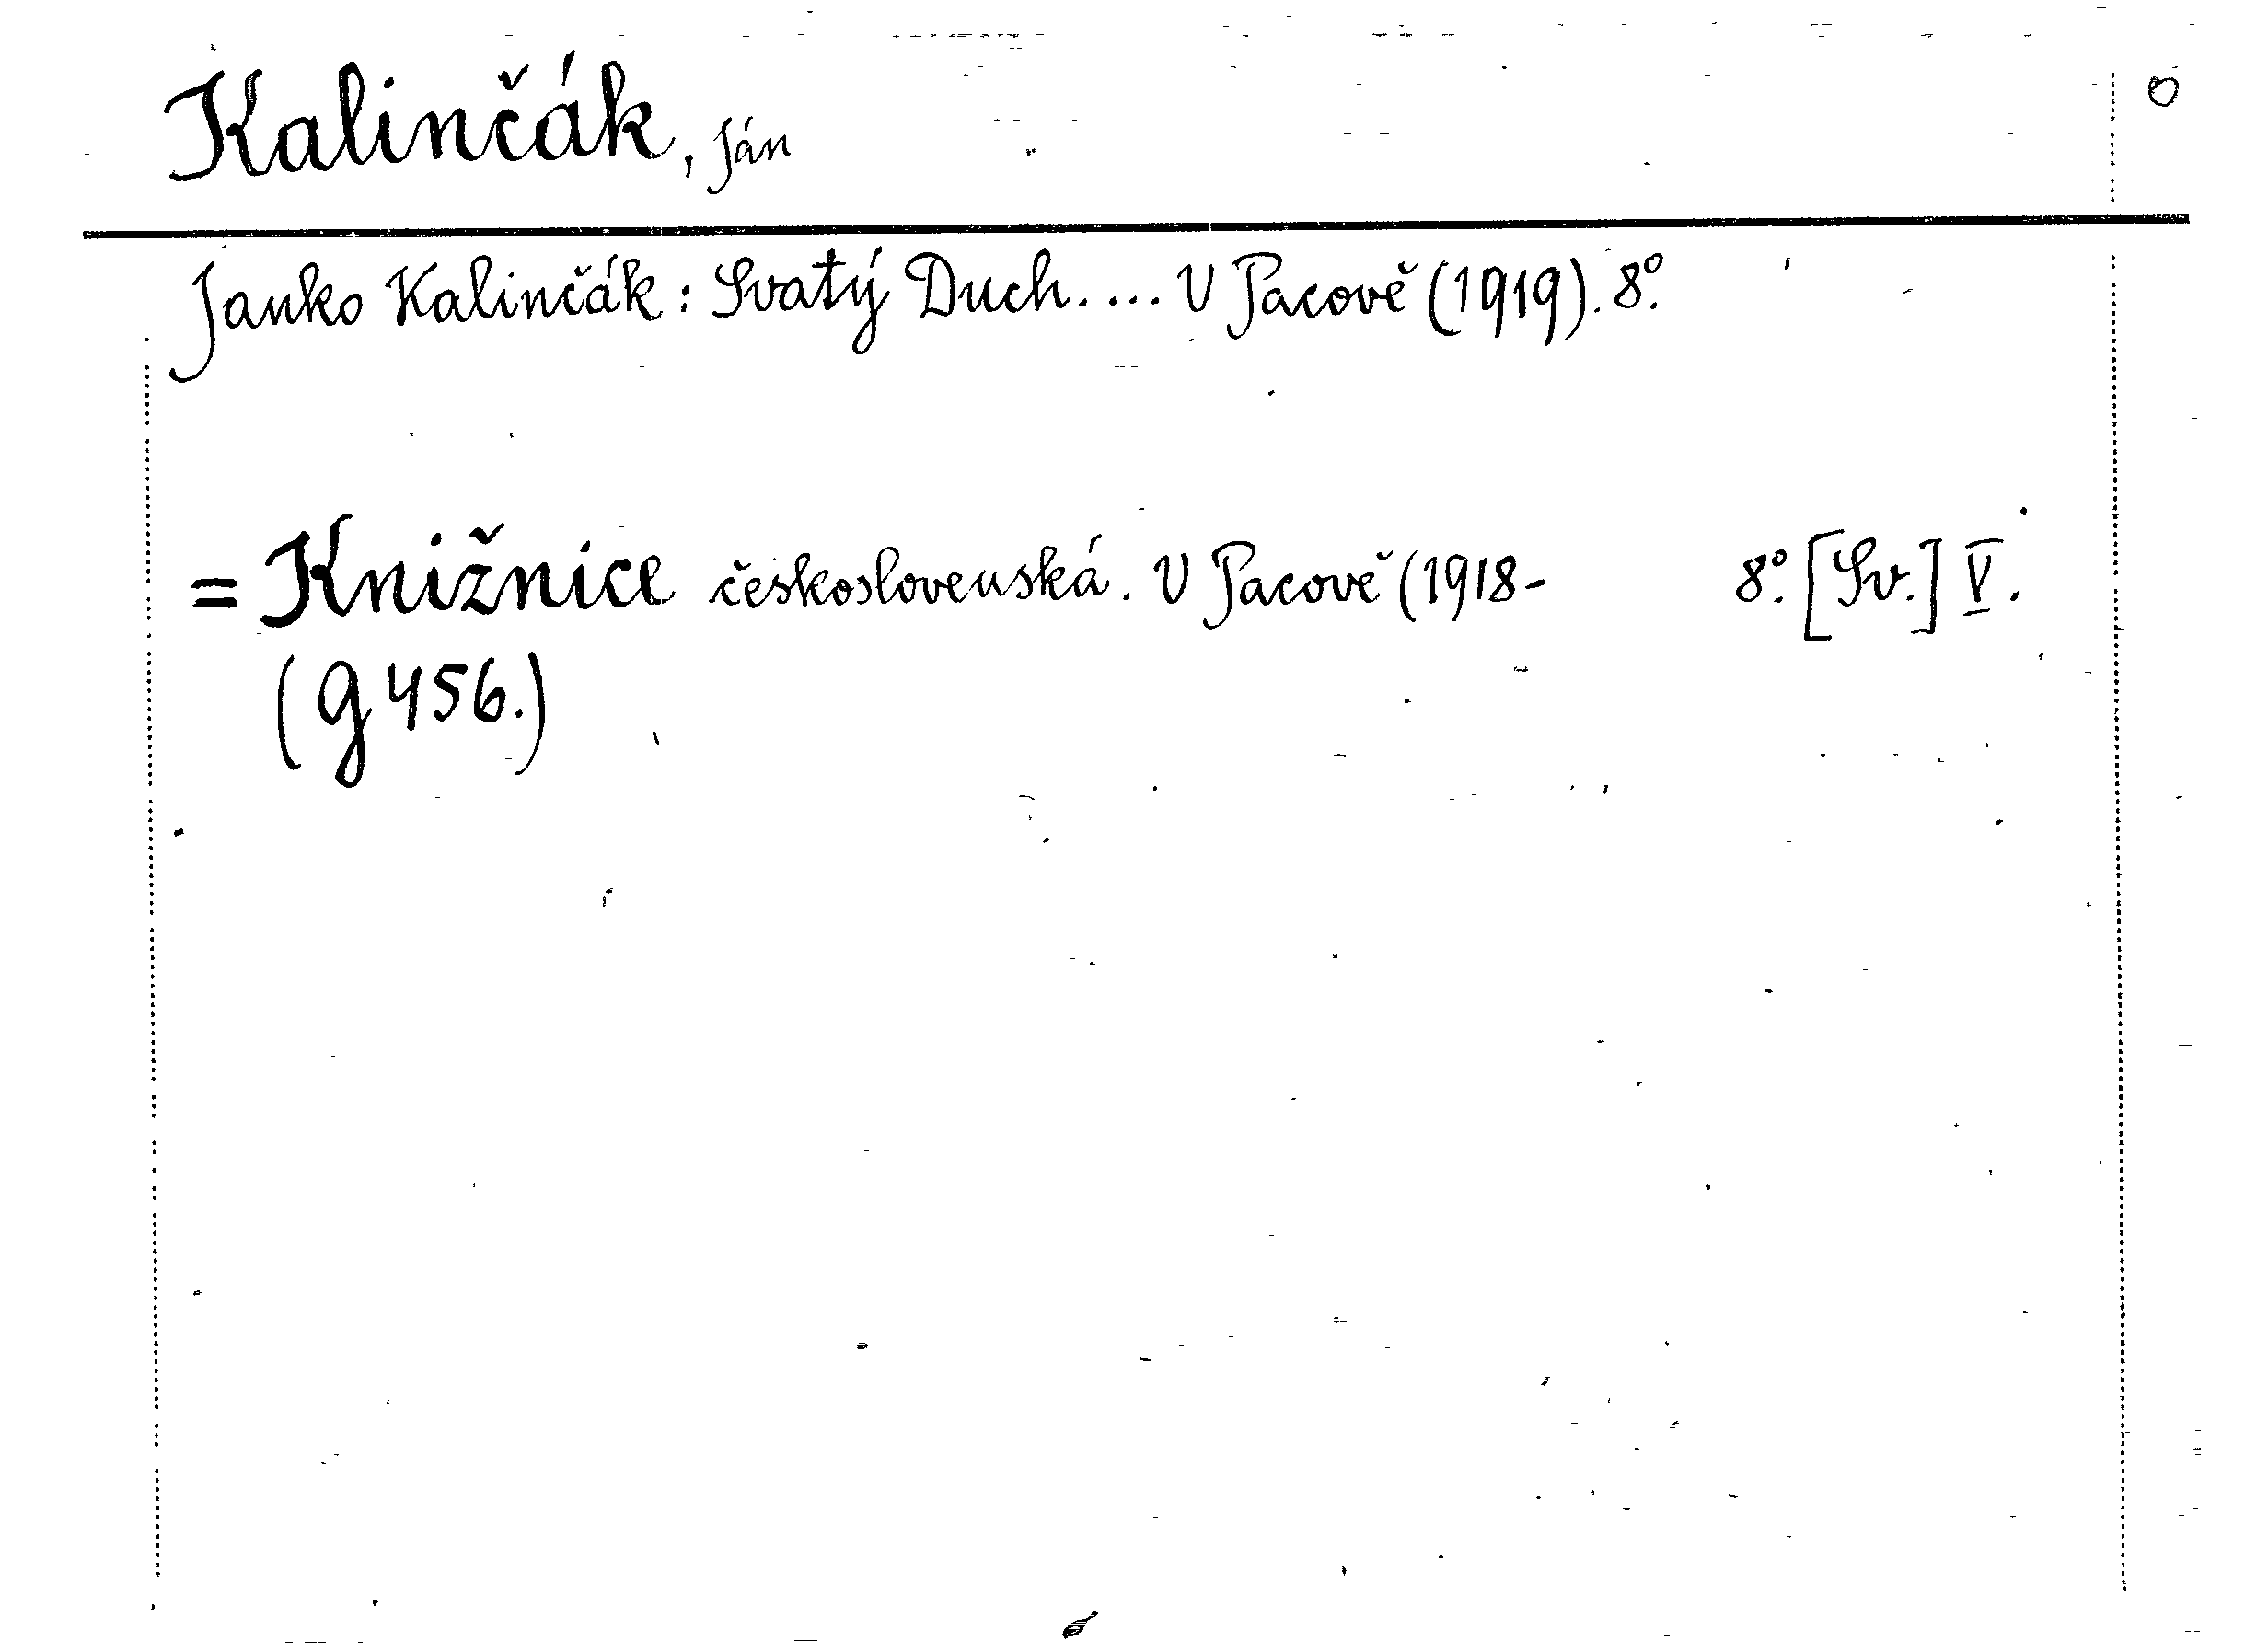 Kalinčák, Ján
Janko Kalinčák: Svatý Duch.... V Pacově (1919). 8º.
= Knižnice československá. V Pacově (1918- 8º. [Sv.] V.
(g 456.)